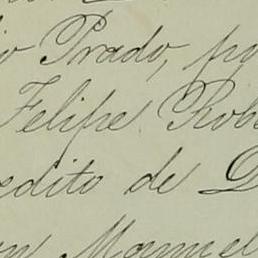 Prado, po
Felipe Rob
edito de D
Manuel